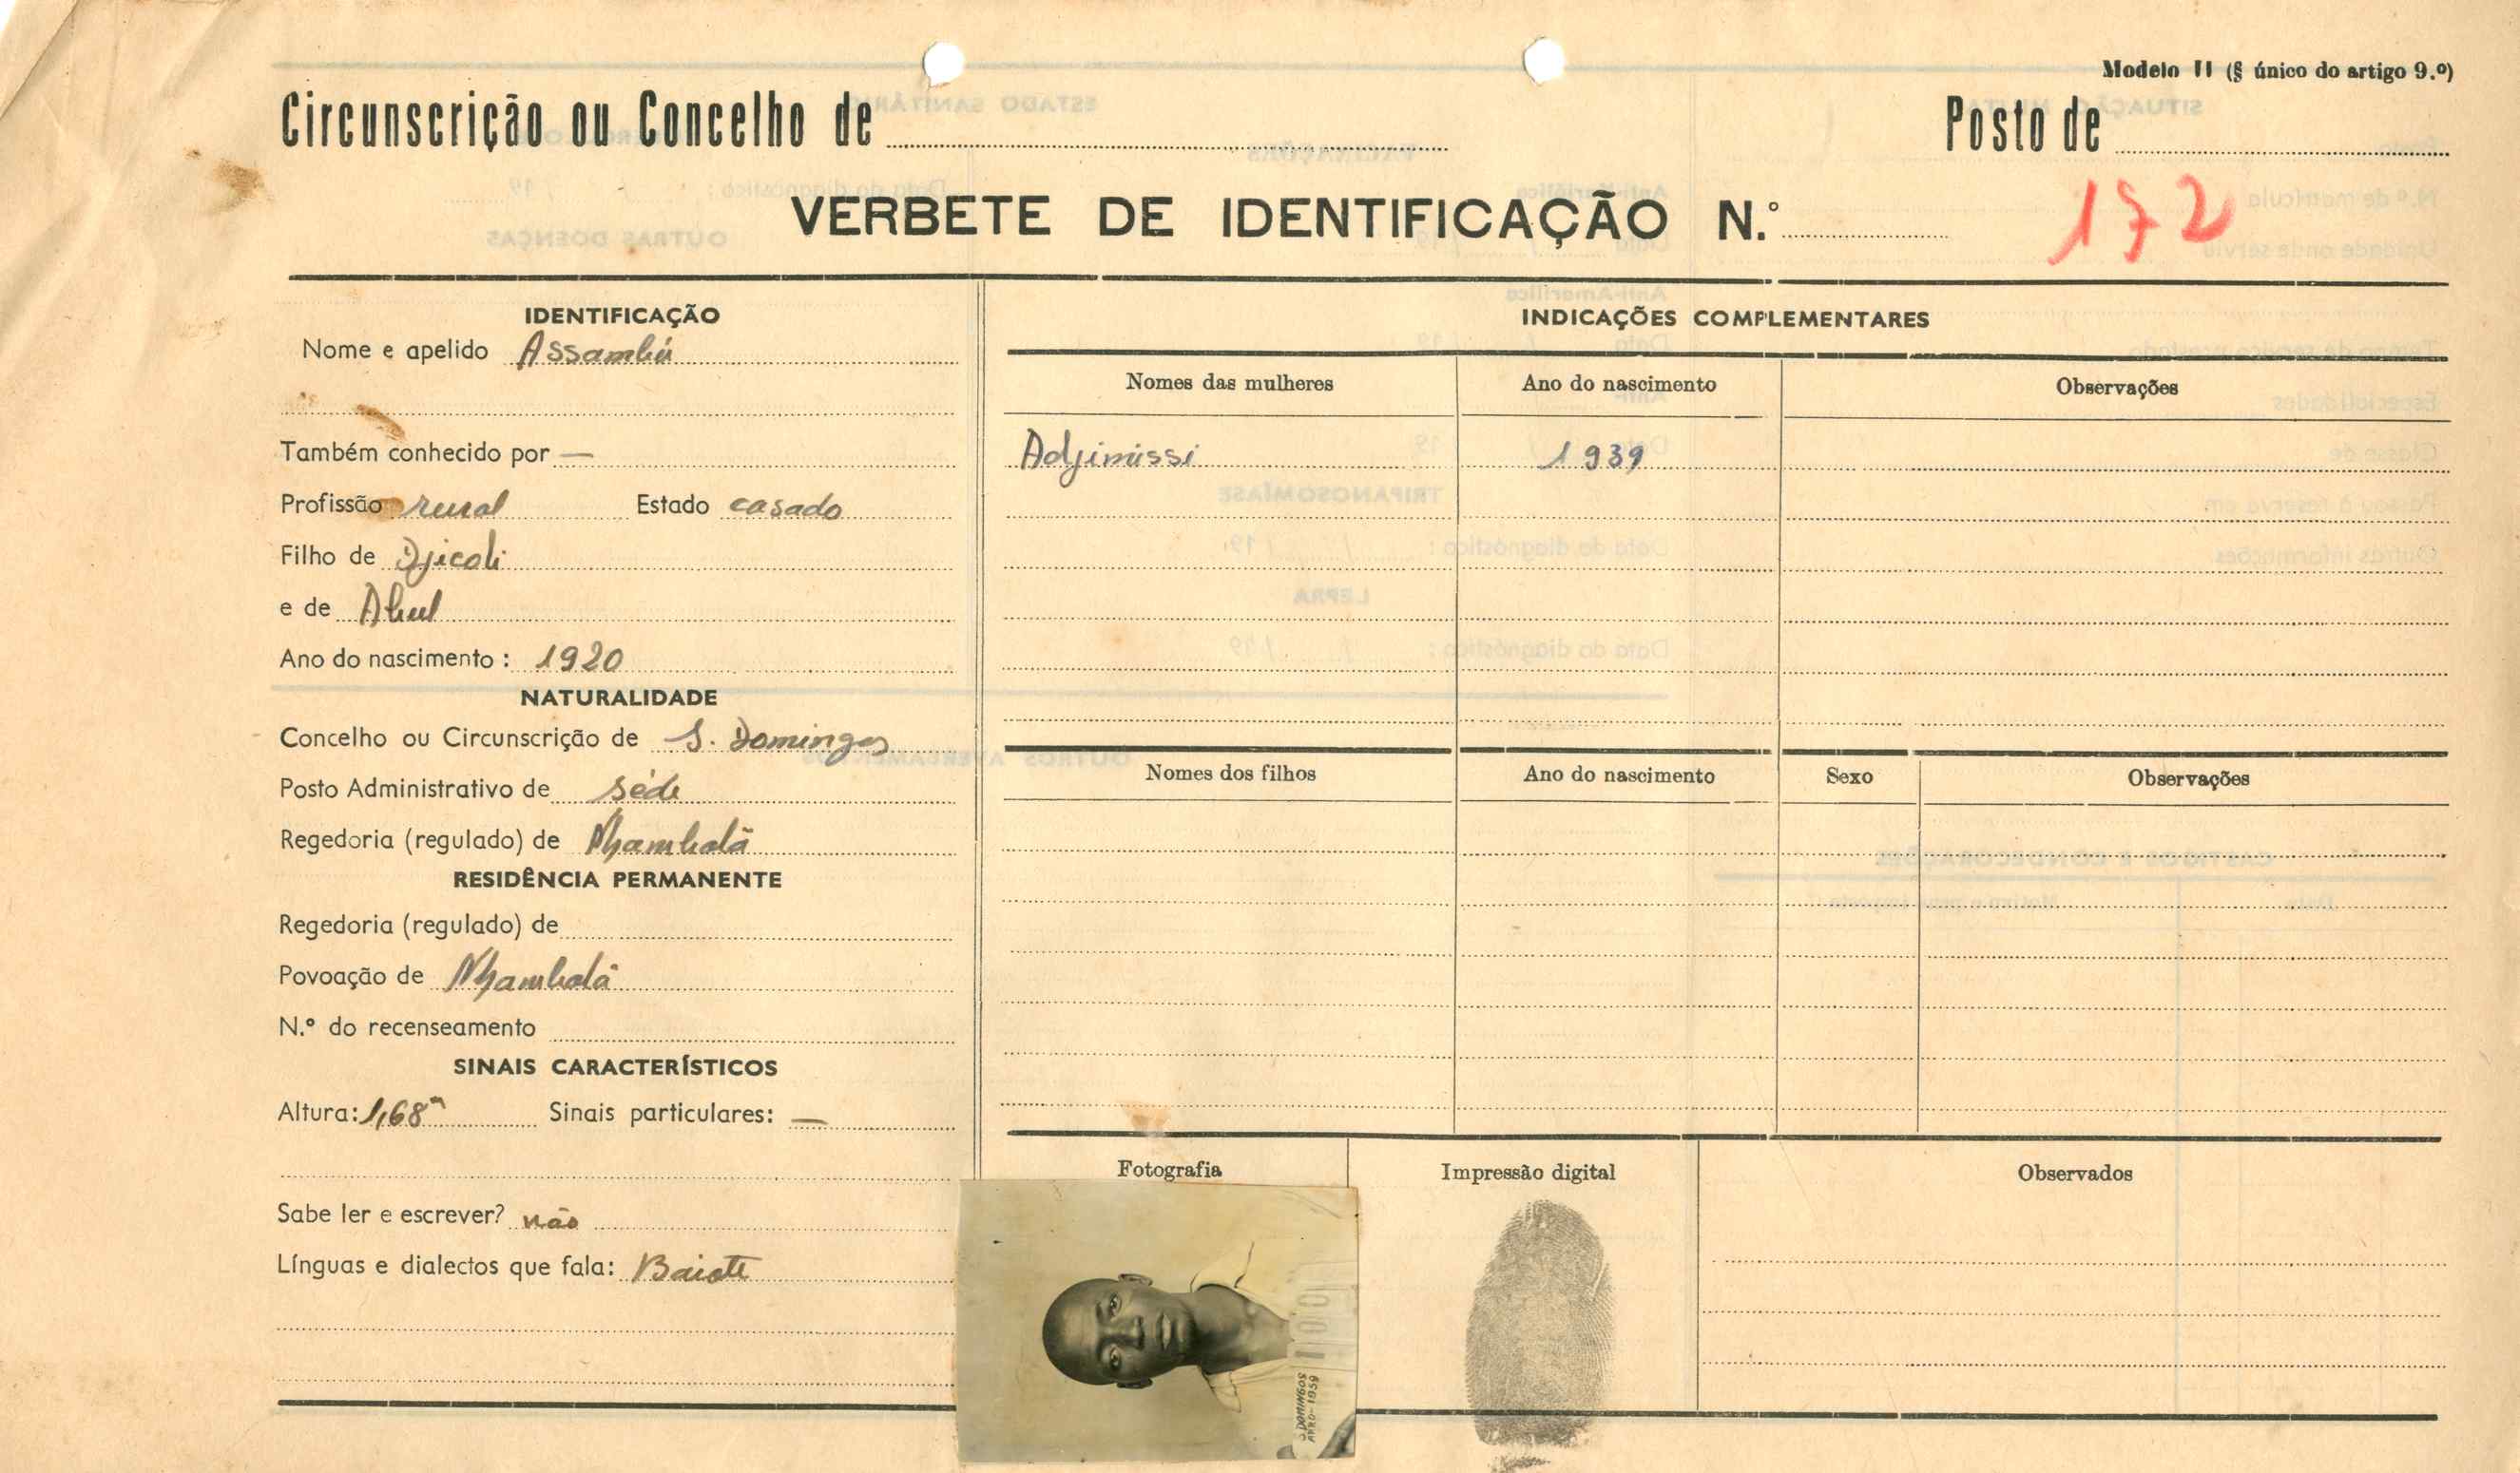 Modelo II (§ único do artigo 9.º)
Circunscrição ou Concelho de
Posto de
VERBETE DE IDENTIFICAÇÃO N.º
172
IDENTIFICAÇÃO
Nome e apelido Assambú
Também conhecido por —
Profissão rural Estado casado
Filho de Djicoli
e de Abul
Ano do nascimento : 1920
NATURALIDADE
Concelho ou Circunscrição de S. Domingos
Posto Administrativo de séde
Regedoria (regulado) de Nhambalã
RESIDÊNCIA PERMANENTE
Regedoria (regulado) de
Povoação de Nhambalã
N.º do recenseamento
SINAIS CARACTERÍSTICOS
Altura: 1,68m Sinais particulares: —
Sabe ler e escrever? não
Línguas e dialectos que fala: Baiote
INDICAÇÕES COMPLEMENTARES
Nomes das mulheres Ano do nascimento Observações
Adjimissi 1939
Nomes dos filhos Ano do nascimento Sexo Observações
Fotografia Impressão digital Observados
S DOMINGOS
1959